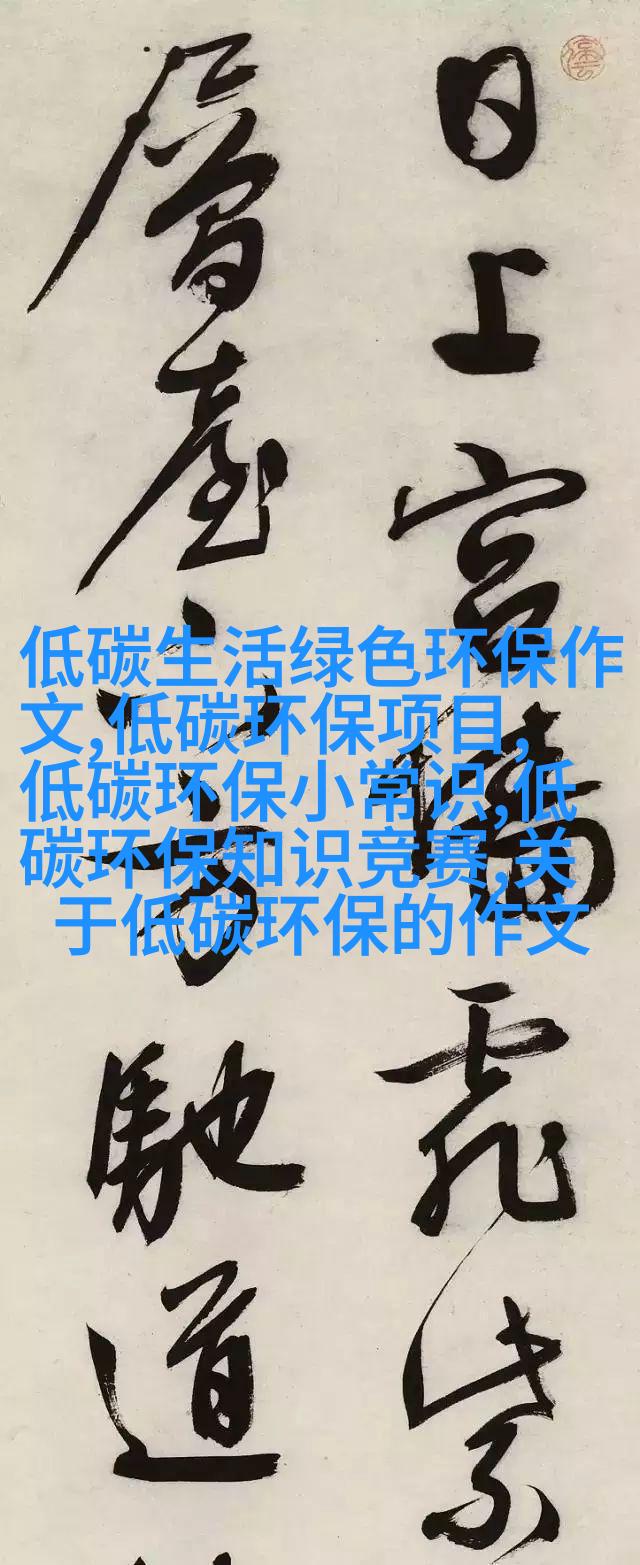 日上宮紫
層臺馳道
低碳生活绿色环保作
文,低碳环保项目,
低碳环保小常识,低
碳环保知识竞赛,关
于低碳环保的作文